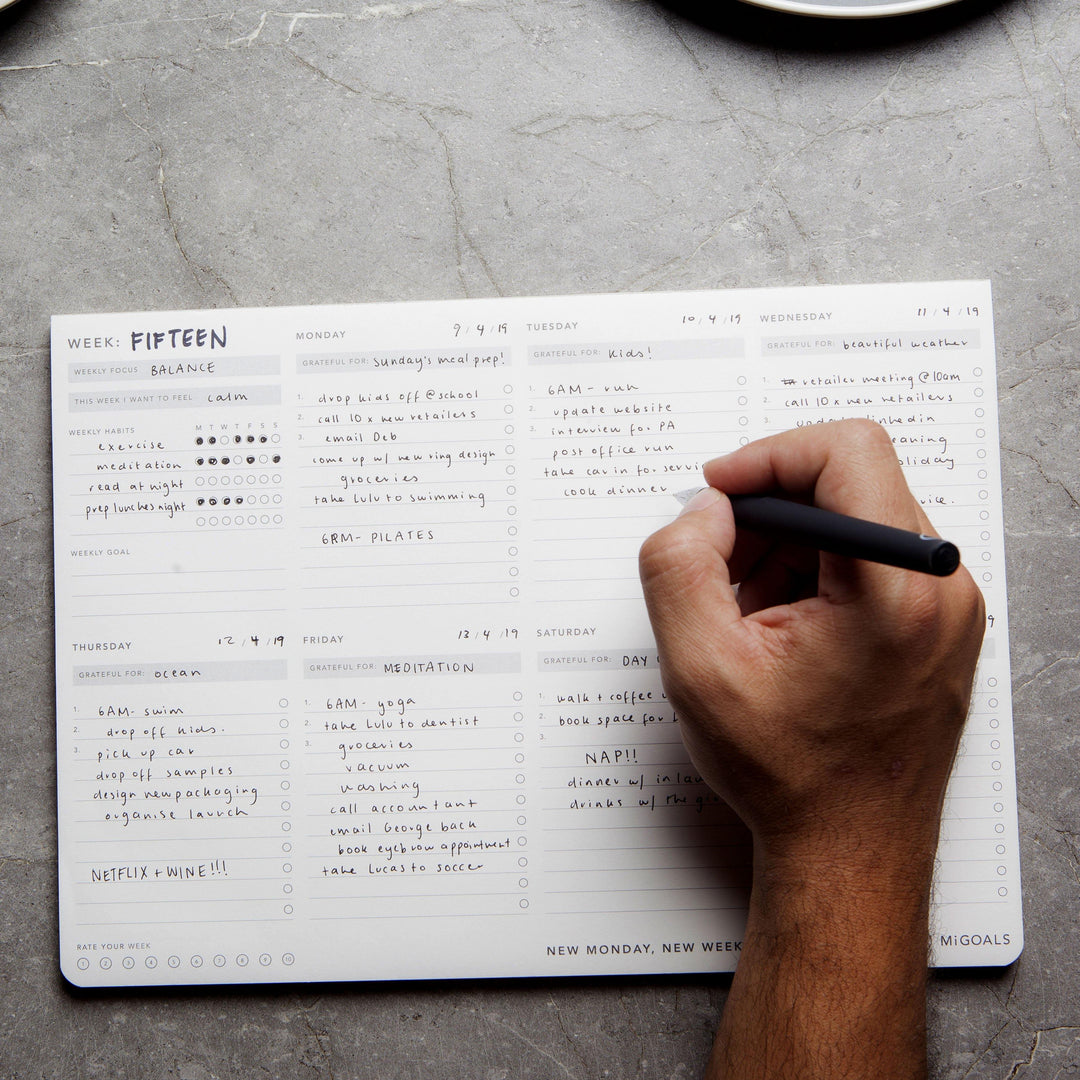 WEEK: FIFTEEN
WEEKLY FOCUS BALANCE
THIS WEEK I WANT TO FEEL calm
WEEKLY HABITS
M T W T F S S
exercise
meditation
read at night
prep lunches night
WEEKLY GOAL
MONDAY 9/4/19
GRATEFUL FOR: Sunday's meal prep!
1. drop kids off @ school
2. call 10 x new retailers
3. email Deb
come up w/ new ring design
groceries
take Lulu to swimming
6PM- PILATES
TUESDAY 10/4/19
GRATEFUL FOR: kids!
1. 6AM- run
2. update website
3. interview for PA
post office run
take car in for
cook dinner
WEDNESDAY 11/4/19
GRATEFUL FOR: beautiful weather
1. retailer meeting @ 10am
2. call 10 x new retailers
3. linkedin
THURSDAY 12/4/19
GRATEFUL FOR: ocean
1. 6AM- swim
2. drop off kids.
3. pick up car
drop off samples
design new packaging
organise launch
NETFLIX + WINE!!!
FRIDAY 13/4/19
GRATEFUL FOR: MEDITATION
1. 6AM- yoga
2. take Lulu to dentist
3. groceries
vacuum
washing
call accountant
email George back
book eyebrow appointment
take Lucas to soccer
SATURDAY
GRATEFUL FOR: DAY
1. walk + coffee
2. book space for
3.
NAP!!
dinner w/ in
drinks w/ the
9
RATE YOUR WEEK
1 2 3 4 5 6 7 8 9 10
NEW MONDAY, NEW WEEK
MiGOALS